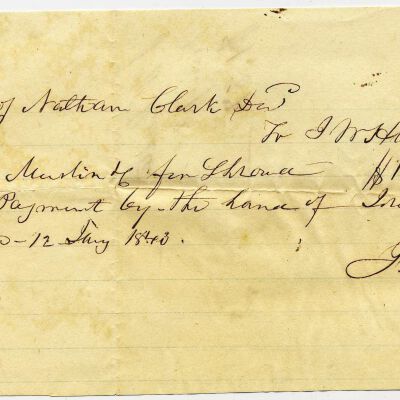 of Nathan Clark Decd
To I W H
Muslin &c for Shroud $1
Payment by the hand of
12 Jany 1843.